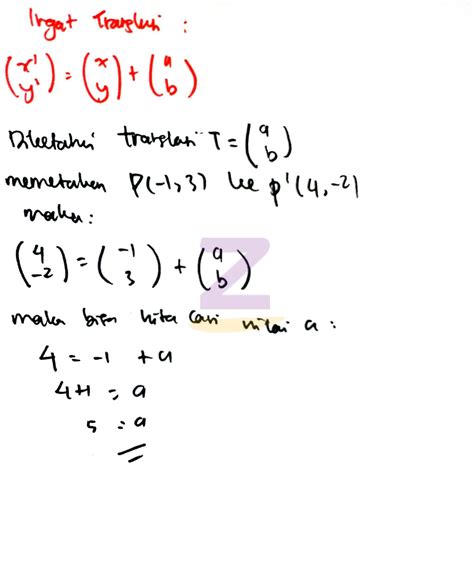 Ingat Translasi :
(x' y') = (x y) + (a b)
Diketahui translasi T = (a b)
memetakan P(-1,3) ke P'(4,-2)
maka:
(4 -2) = (-1 3) + (a b)
maka bisa kita cari nilai a :
4 = -1 + a
4+1 = a
5 = a
Z